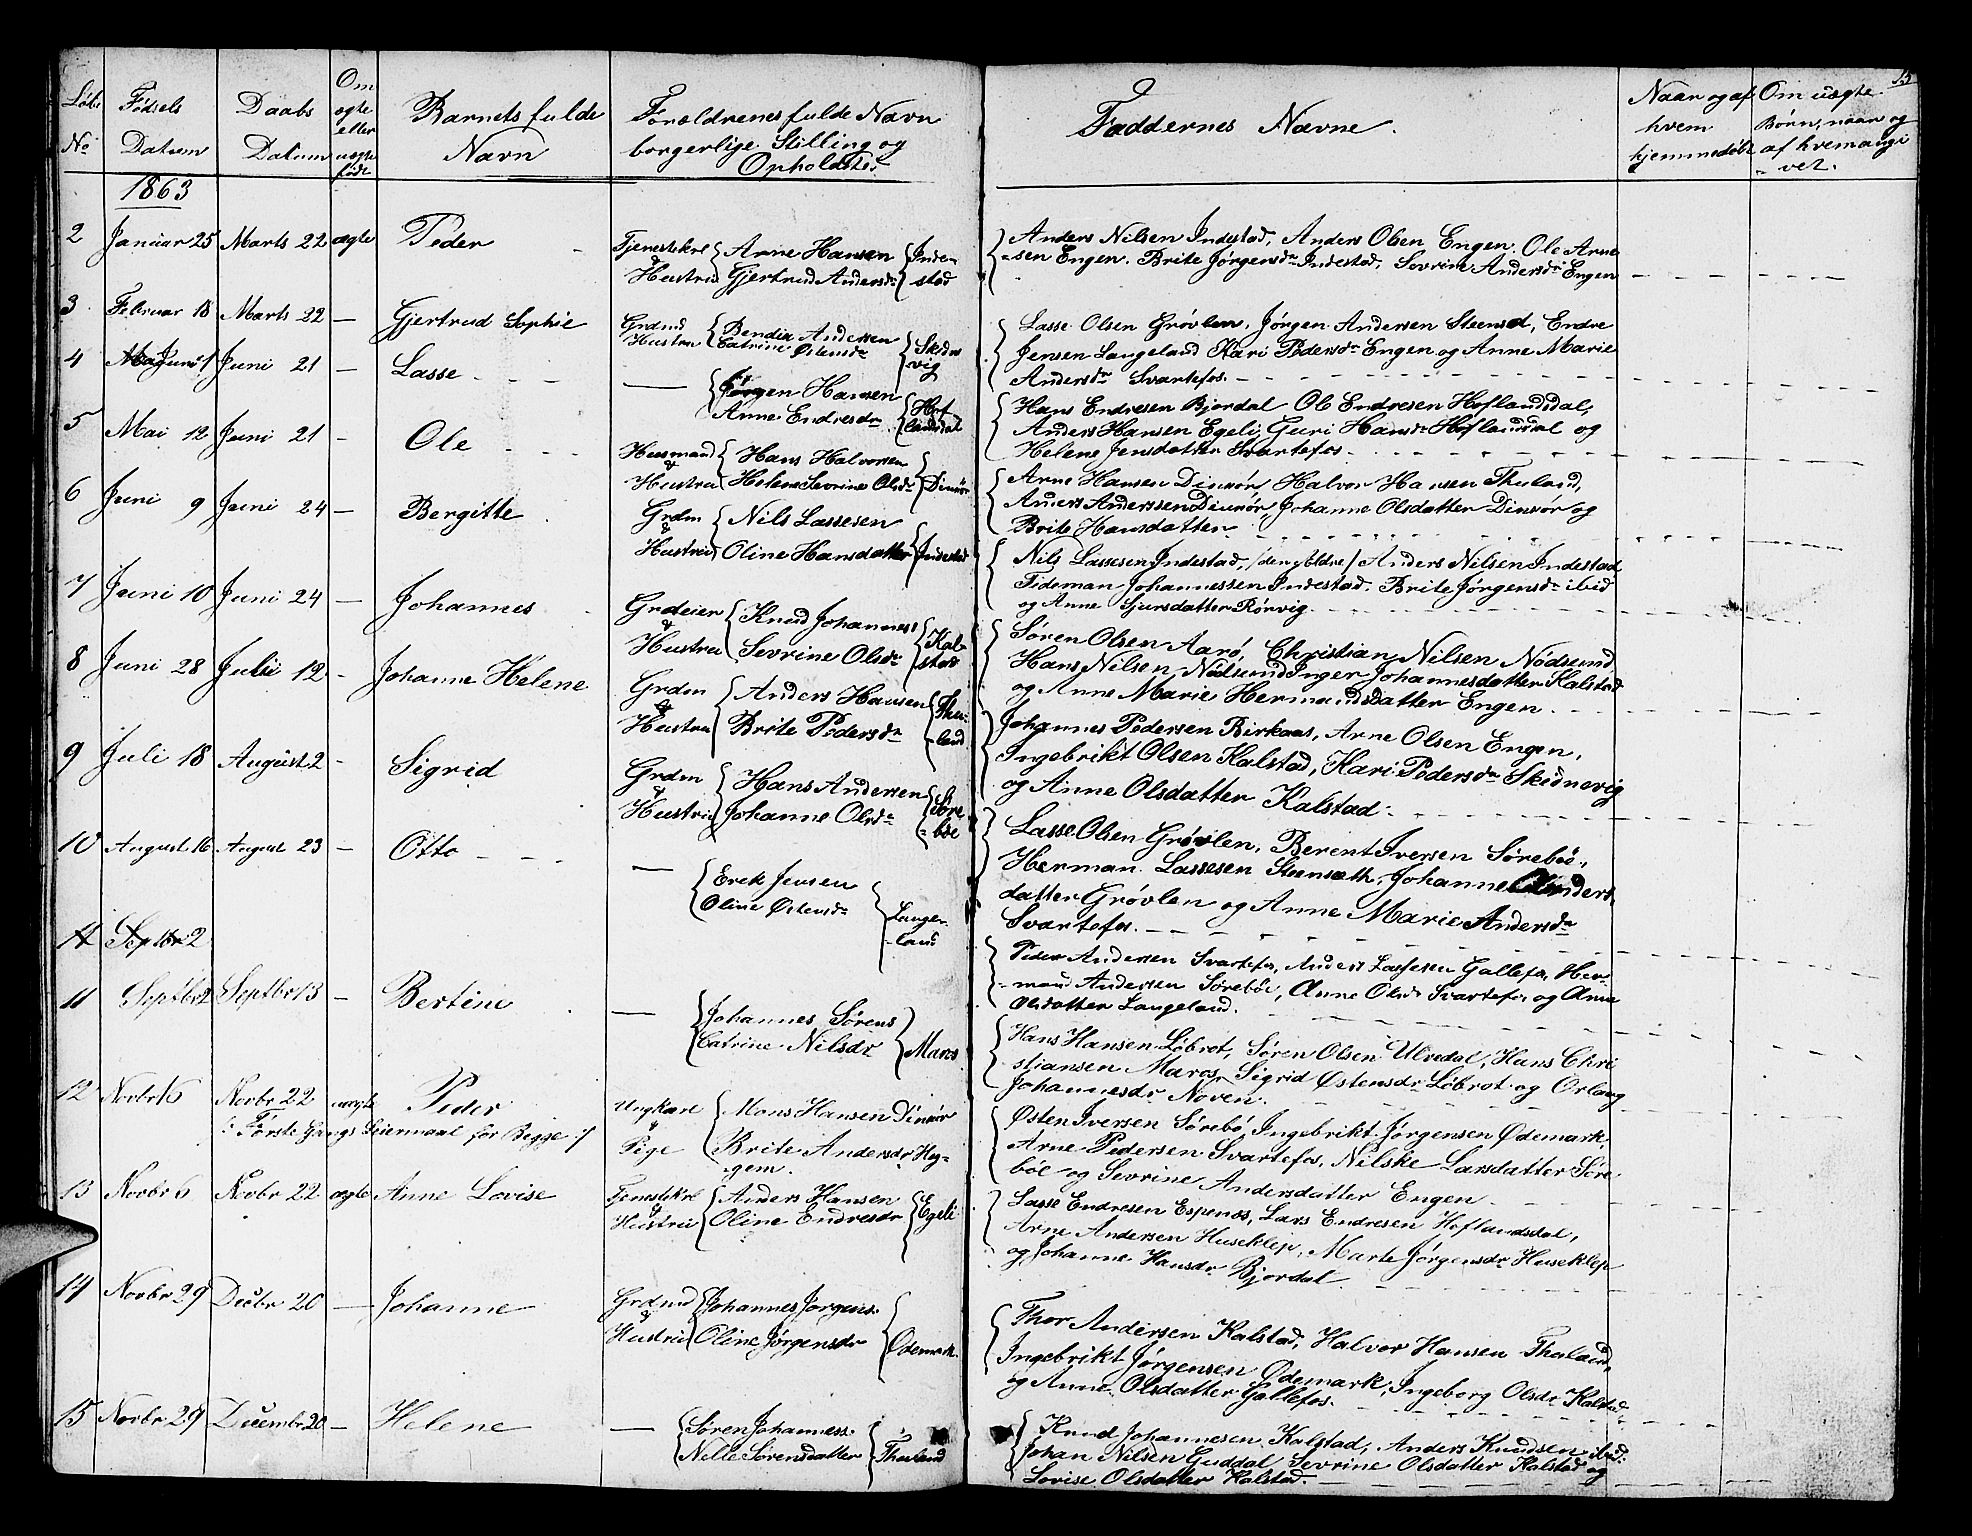 15
Løbe Fødsels Daabs Om ægte eller uægte født Barnets fulde Forældrenes fulde Navn Faddernes Navne. Naar og af Om uægte
No Datum Datum Navn borgerlige Stilling og hvem Børn, naar og
Opholdster hjemmedøbt af hvem angi
vet.
1863
2 Januar 25 Marts 22 ægte Peder Tjenestekrl & Hustru Arne Hansen Gjertrud Andersdr Indestad
Anders Nilsen Indestad, Anders Olsen Engen. Ole Arne
sen Engen. Brite Jørgensdr Indestad, Sevrine Andersdr Engen
3 Februar 18 Marts 22 — Gjertrud Sophie Grdmd Hustru Bendix Andersen Catrine Østensdr Skidnevig
Lasse Olsen Grøvlen, Jørgen Andersen Steensæt, Endre
Jensen Langeland Kari Pedersdr Engen og Anne Marie
Andersdr Svartefos.
4 Juni 1 Juni 21 — Lasse — Jørgen Hansen Anne Endresdr Hoflandsdal
Hans Endresen Bjordal Ole Endresen Hoflandsdal,
Anders Hansen Egeli, Guri Hansdr Hoflandsdal og
Helene Jensdatter Svartefos.
5 Mai 12 Juni 21 — Ole Husmand & Hustru Hans Halvorsen Helene Sevrine Olsdr Dinnør
Arne Hansen Dinnør, Halvor Hansen Thuland,
Anders Anderssen Dinnør, Johanne Olsdatter Dinnør og
Brite Hansdatter
6 Juni 9 Juni 24 — Bergitte Grdm & Hustru Nils Lassesen Oline Hansdatter Indestad
Nils Lassesen Indestad, /den yldre/ Anders Nilsen Indestad
Tideman Johannessen Indestad. Brite Jørgensdr ibid
og Anne Sjursdatter Rørvig.
7 Juni 10 Juni 24 — Johannes Grdeier & Hustru Knud Johannes: Sevrine Olsdr Kalstad
Søren Olsen Aarø, Christian Nilsen Nødsund
Hans Nilsen, Nødsund Inger Johannesdatter Kalstad
og Anne Marie Hermandsdatter Engen.
8 Juni 28 Julii 12 — Johanne Helene Grdm & Hustru Anders Hansen Brite Pedersdr Thuland
Johannes Pedersen Birkaas, Arne Olsen Engen,
Ingebrikt Olsen Kalstad, Kari Pedersdr Skidnevig
og Anne Olsdatter Kalstad.
9 Juli 18 August 2 — Sigrid Grdm & Hustru Hans Andersen Johanne Olsdr Sørebøe
Lasse Olsen Grøvlen, Berent Iversen Sørebøe,
Herman Lassesen Steensæth, Johanne Anders
datter Grøvlen og Anne Marie Andersdr
Svartefos.
10 August 16 August 23 — Otto — Erek Jensen Oline Østensdr Langeland
Peder Andersen Svartefos, Anders Lassesen Gallefos, Her-
mand Andersen Sørebøe, Anne Olsdr Svartefos og Anne
Olsdatter Langeland.
11 Septbr 2
11 Septbr 2 Septbr 13 — Bertine — Johannes Sørens Catrine Nilsdr Maros
Hans Hansen Løbrot, Søren Olsen Ulvedal, Hans Chri
stiansen Maros, Sigrid Østensdr Løbrot og Orlaug
Johannesdr Noven.
12 Novbr 6 Novbr 22 uægte Peder Ungkarl & Pige Mons Hansen Dinnør Brite Andersdr Hey-
gem.
/: Første Gangs Leiermaal for Begge :/
Østen Iversen Sørebø, Ingebrikt Jørgensen Ødemark,
Arne Pedersen Svartefos, Nilske Larsdatter Søre
bøe og Sevrine Andersdatter Engen
13 Novbr 6 Novbr 22 ægte Anne Lovise Tjenestekrl & Hustru Anders Hansen Oline Endresdr Egeli
Lasse Endresen Espenes, Lars Endresen Hoflandsdal,
Arne Andersen Huseklep, Marte Jørgensdr Huseklep
og Johanne Hansdr Bjordal
14 Novbr 29 Decbr 20 — Johanne Grdmd & Hustru Johannes Jørgens. Oline Jørgensdr Ødemark.
Thor Andersen Kalstad, Halvor Hansen Thuland,
Ingebrikt Jørgensen Ødemark, Ingeborg Olsdr Kalstad
og Anne Olsdatter Gallefos.
15 Novbr 29 Decembr 20 — Helene — Søren Johanness. Nille Sørensdatter Thuland
Knud Johannesen Kalstad, Anders Knudsen ibid:
Johan Nilsen Guddal Sevrine Olsdatter Kalstad og
Lovise Olsdatter Kalstad.